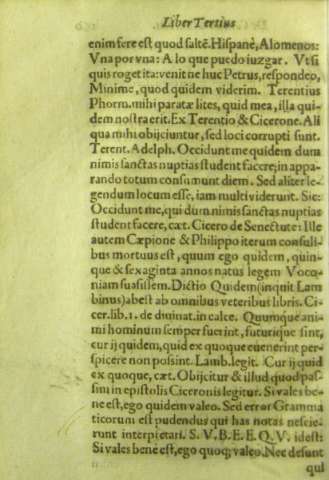 Liber Tertius
enim fere est quod saltē. Hispanè, Alomenos:
Vna por vna: A lo que puedo iuzgar. Vt si
quis roget ita: venit ne huc Petrus, respondeo,
Minime, quod quidem viderim. Terentius
Phorm. mihi paratæ lites, quid mea, illa qui-
dem nostra erit. Ex Terentio & Cicerone. Ali
qua mihi objciuntur, sed loci corrupti sunt.
Terent. Adelph. Occidunt me quidem dum
nimis sanctas nuptias student facere; in appa-
rando totum consumunt diem. Sed aliter le-
gendum locum esse, iam multi viderunt. Sic:
Occidunt me, qui dum nimis sanctas nuptias
student facere, cæt. Cicero de Senectute: Ille
autem Cæpione & Philippo iterum consuli-
bus mortuus est, quum ego quidem, quin-
que & sexaginta annos natus legem Voco-
niam suasissem. Dictio Quidem (inquit Lam
binus) abest ab omnibus veteribus libris. Ci-
cer. lib. 1. de diuinat. in calce. Quumque ani-
mi hominum semper fuerint, futurique sint,
cur ij quidem, quid ex quoque eueneri̅t per-
spicere non possint. Lamb. legit. Cur ij quid
ex quoque, cæt. Objcitur & illud quod pas-
sim in epistolis Ciceronis legitur. Si vales be-
ne est, ego quidem valeo. Sed error Gramma
ticorum est pudendus qui has notas nescie-
runt interpretari. S. V. B. E. E. Q. V. idest:
Si vales bene est, ego quoq; valeo. Nec desunt
qui